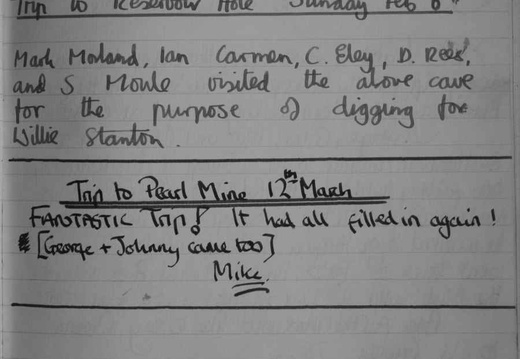 Trip to Reservoir Hole Sunday Feb 6th
Mark Morland, Ian Carmen, C. Eley, D. Rees,
and S Moule visited the above cave
for the purpose of digging for
Willie Stanton.
Trip to Pearl Mine 12th March
FANTASTIC Trip! It had all filled in again!
[George + Johnny came too]
Mike